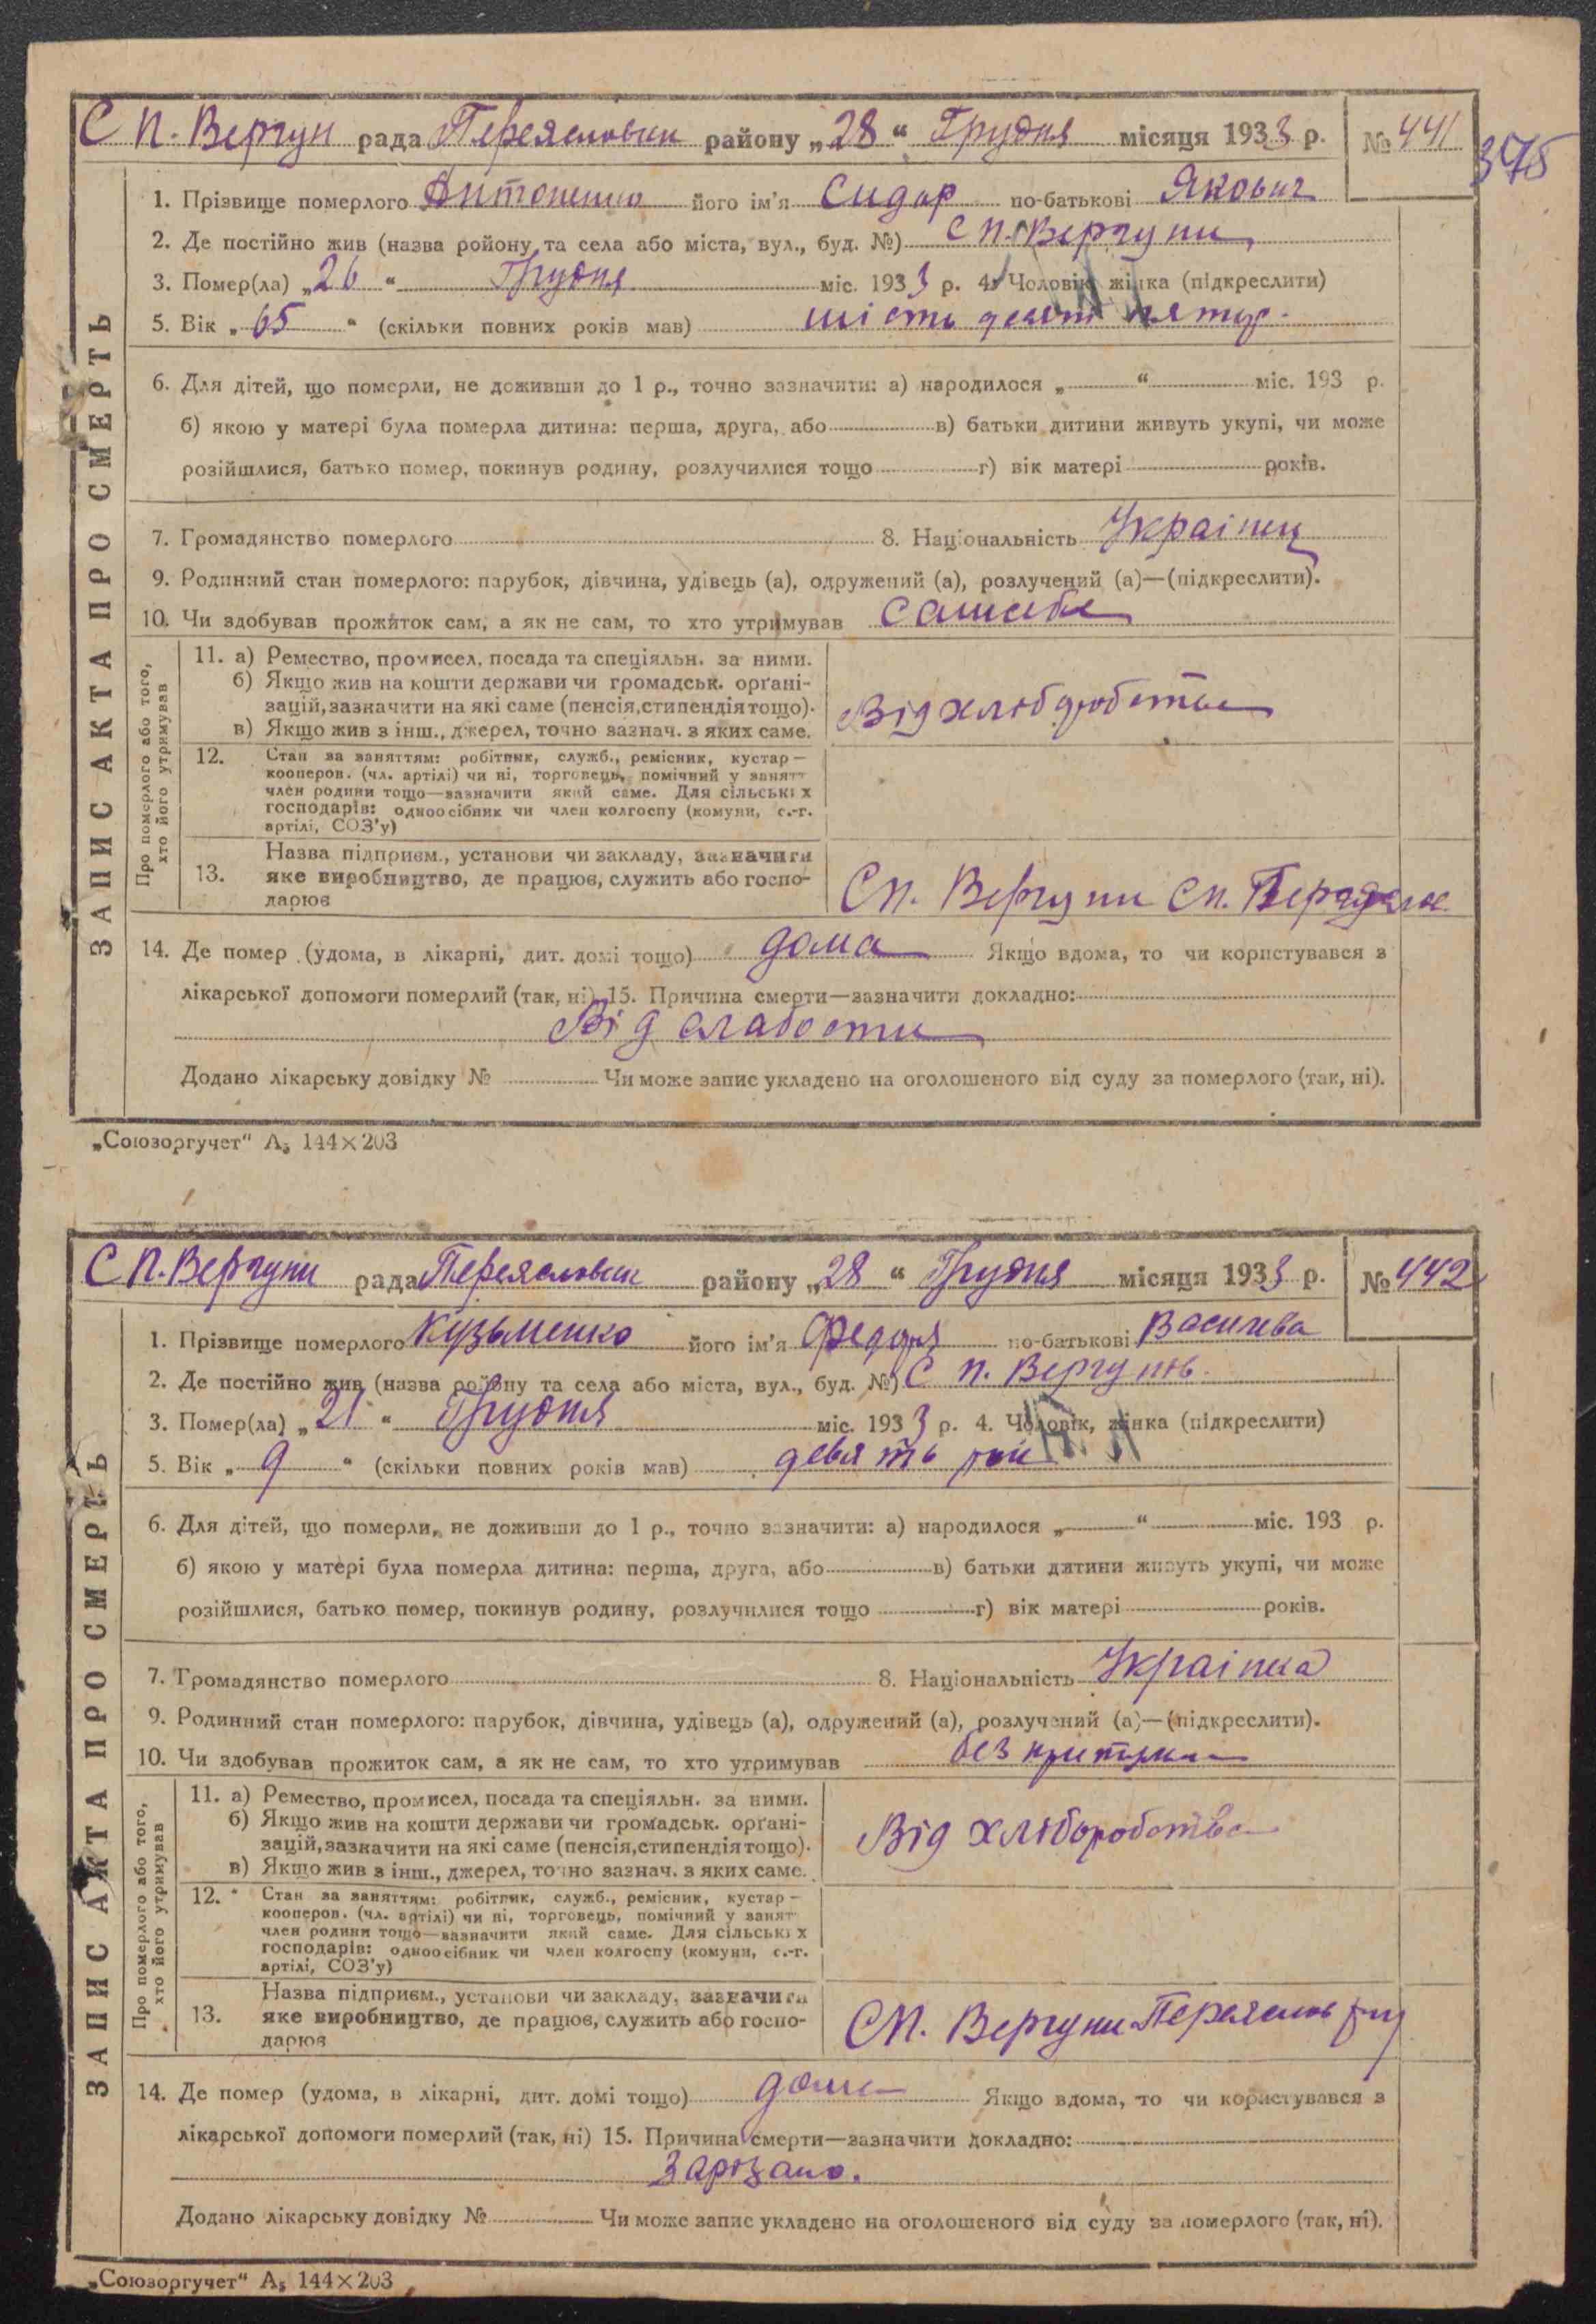 С П. Вергун рада Переясловськ району „28“ Грудня місяця 1933 р. № 441
375
1. Прізвище померлого Антоненко його ім'я Сидар по-батькові Якович
2. Де постійно жив (назва ройону та села або міста, вул., буд. №) С П. Вергуни
3. Помер(ла) „26“ Грудня міс. 1933 р. 4. Чоловік, жінка (підкреслити)
5. Вік „65“ (скільки повних років мав) шість десят
6. Для дітей, що померли, не доживши до 1 р., точно зазначити: а) народилося „ “ міс. 193 р.
б) якою у матері була померла дитина: перша, друга, або в) батьки дитини живуть укупі, чи може
розійшлися, батько помер, покинув родину, розлучилися тощо г) вік матері років.
7. Громадянство померлого 8. Національність Українец
9. Родинний стан померлого: парубок, дівчина, удівець (а), одружений (а), розлучений (а)—(підкреслити).
10. Чи здобував прожиток сам, а як не сам, то хто утримував
ЗАПИС АКТА ПРО СМЕРТЬ
Про померлого або того, хто його утримував
11. а) Ремество, промисел, посада та спеціяльн. за ними.
б) Якщо жив на кошти держави чи громадськ. орґані-
зацій, зазначити на які саме (пенсія, стипендія тощо).
в) Якщо жив з інш., джерел, точно зазнач. з яких саме.
Від
12. Стан за заняттям: робітник, служб., ремісник, кустар—
кооперов. (чл. артілі) чи ні, торговець, помічний у занятт
член родини тощо—вазначити який саме. Для сільських
господарів: одноосібник чи член колгоспу (комуни, с.-г.
артілі, СОЗ'у)
13. Назва підприєм., установи чи закладу, зазначити
яке виробництво, де працює, служить або госпо-
дарює
Сп. Вергуни Сп.
14. Де помер (удома, в лікарні, дит. домі тощо) дома Якщо вдома, то чи користувався з
лікарської допомоги померлий (так, ні) 15. Причина смерти—зазначити докладно:
Від слабости
Додано лікарську довідку № Чи може запис укладено на оголошеного від суду за померлого (так, ні).
„Союзоргучет“ А₅ 144×203
С П. Вергуни рада Переясловськ району „28“ Грудня місяця 1933 р. № 442
1. Прізвище померлого Кузьменко його ім'я по-батькові Василева
2. Де постійно жив (назва ройону та села або міста, вул., буд. №) С п. Вергунів
3. Помер(ла) „21“ Грудня міс. 1933 р. 4. Чоловік, жінка (підкреслити)
5. Вік „9“ (скільки повних років мав) девять рок
6. Для дітей, що померли, не доживши до 1 р., точно зазначити: а) народилося „ “ міс. 193 р.
б) якою у матері була померла дитина: перша, друга, або в) батьки дитини живуть укупі, чи може
розійшлися, батько помер, покинув родину, розлучилися тощо г) вік матері років.
7. Громадянство померлого 8. Національність Українка
9. Родинний стан померлого: парубок, дівчина, удівець (а), одружений (а), розлучений (а)—(підкреслити).
10. Чи здобував прожиток сам, а як не сам, то хто утримував без
ЗАПИС АКТА ПРО СМЕРТЬ
Про померлого або того, хто його утримував
11. а) Ремество, промисел, посада та спеціяльн. за ними.
б) Якщо жив на кошти держави чи громадськ. орґані-
зацій, зазначити на які саме (пенсія, стипендія тощо).
в) Якщо жив з інш., джерел, точно зазнач. з яких саме.
Від хліборобства
12. Стан за заняттям: робітник, служб., ремісник, кустар—
кооперов. (чл. артілі) чи ні, торговець, помічний у занят
член родини тощо—вазначити який саме. Для сільських
господарів: одноосібник чи член колгоспу (комуни, с.-г.
артілі, СОЗ'у)
13. Назва підприєм., установи чи закладу, зазначити
яке виробництво, де працює, служить або госпо-
дарює
СП. Вергуни Переяслов
14. Де помер (удома, в лікарні, дит. домі тощо) дома Якщо вдома, то чи користувався з
лікарської допомоги померлий (так, ні) 15. Причина смерти—зазначити докладно:
Зарізано.
Додано лікарську довідку № Чи може запис укладено на оголошеного від суду за померлого (так, ні).
„Союзоргучет“ А₅ 144×203